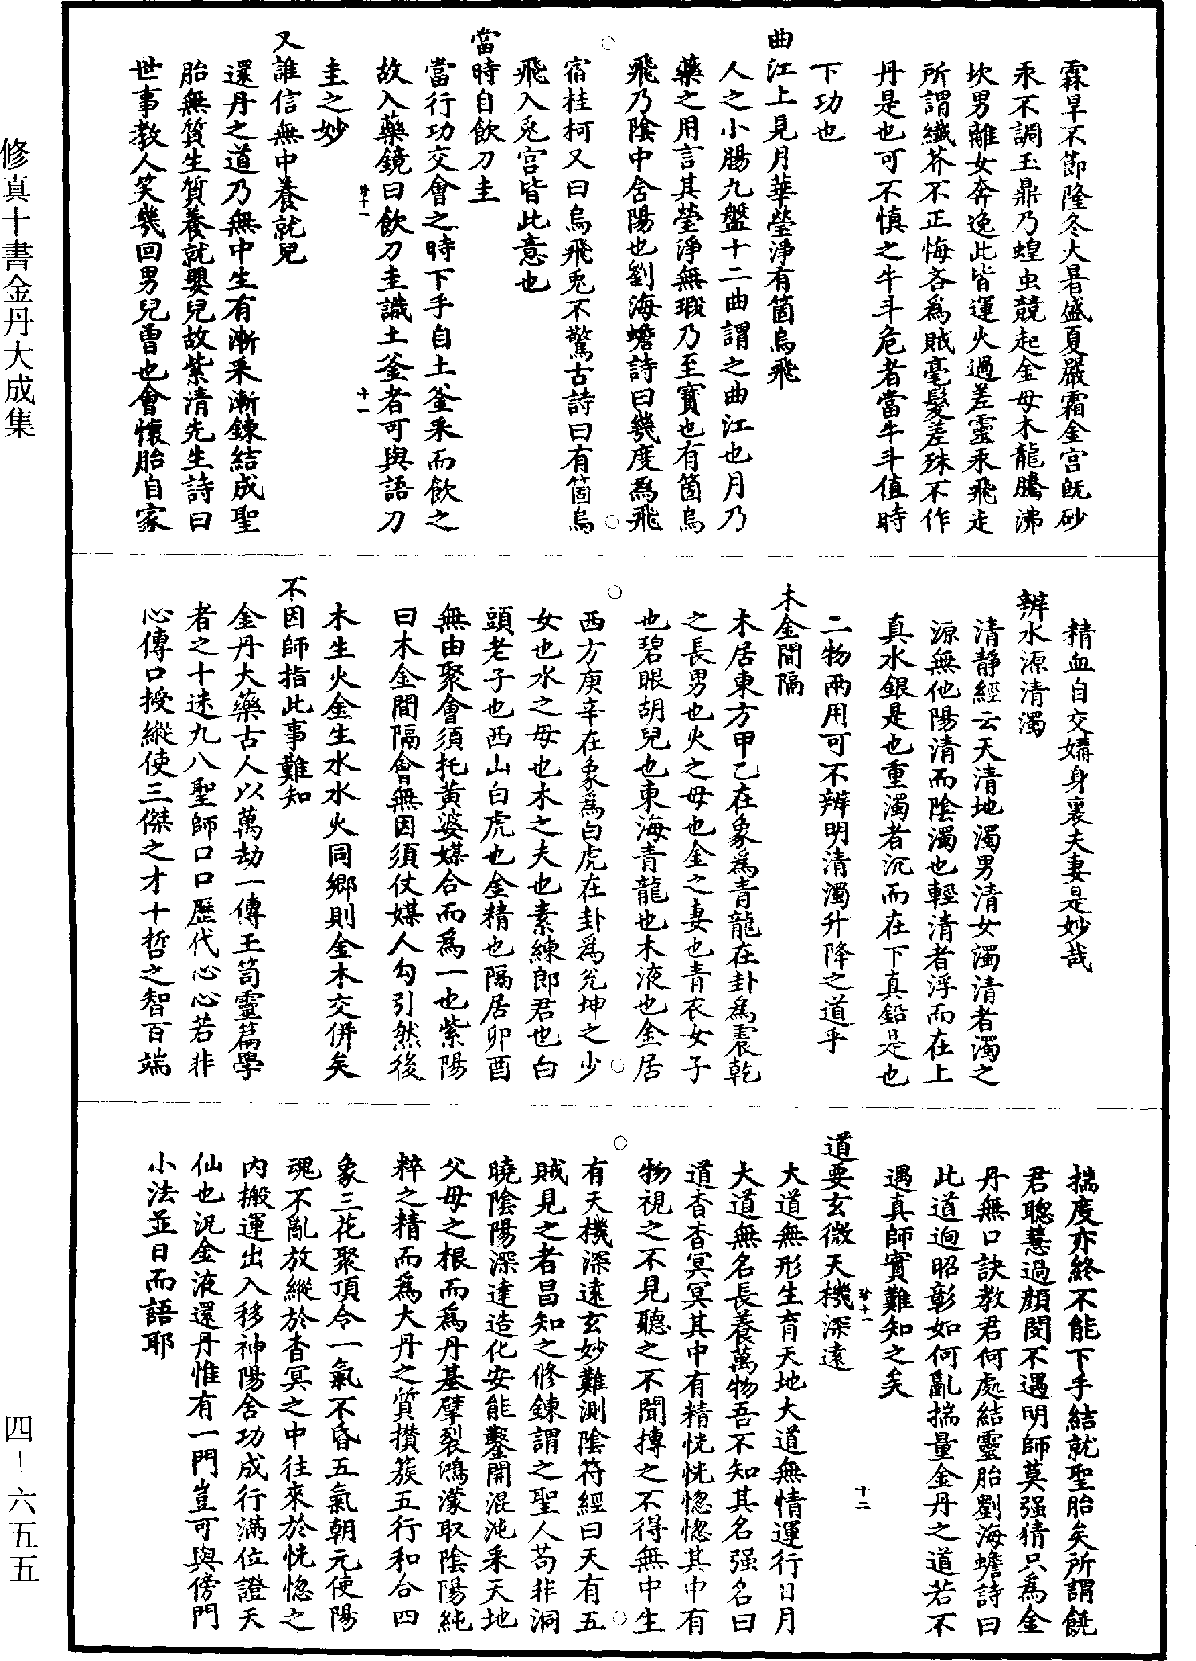 修真十書金丹大成集
霖旱不節隆冬大暑盛夏嚴霜金宮既砂
汞不調玉鼎乃蝗虫競起金母木龍騰沸
坎男離女奔逸此皆運火過差靈汞飛走
所謂纖芥不正悔吝為賊毫髮差殊不作
丹是也可不慎之牛斗危者當牛斗值時
下功也
曲江上見月華瑩淨有箇烏飛
人之小腸九盤十二曲謂之曲江也月乃
藥之用言其瑩淨無瑕乃至寶也有箇烏
飛乃陰中含陽也劉海蟾詩曰幾度為飛
宿桂柯又曰烏飛兎不驚古詩曰有箇烏
飛入兎宮皆此意也
當時自飲刀圭
當行功交會之時下手自土釜采而飲之
故入藥鏡曰飲刀圭識土釜者可與語刀
珍十一
十一
圭之妙
又誰信無中養就兒
還丹之道乃無中生有漸采漸鍊結成聖
胎無質生質養就嬰兒故紫清先生詩曰
世事教人笑幾回男兒曾也會懷胎自家
精血自交媾身裏夫妻是妙哉
辨水源清濁
清靜經云天清地濁男清女濁清者濁之
源無他陽清而陰濁也輕清者浮而在上
真水銀是也重濁者沉而在下真鉛是也
二物兩用可不辨明清濁升降之道乎
木金間隔
木居東方甲乙在象為青龍在卦為震乾
之長男也火之母也金之妻也青衣女子
也碧眼胡兒也東海青龍也木液也金居
西方庚辛在象為白虎在卦為兌坤之少
女也水之母也木之夫也素練郎君也白
頭老子也西山白虎也金精也隔居卯酉
無由聚會須托黃婆媒合而為一也紫陽
曰木金間隔會無因須仗媒人勾引然後
木生火金生水水火同鄉則金木交併矣
不因師指此事難知
金丹大藥古人以萬劫一傳玉笥靈篇學
者之十迷九八聖師口口歷代心心若非
心傳口授縱使三傑之才十哲之智百端
揣度亦終不能下手結就聖胎矣所謂饒
君聰慧過顏閔不遇明師莫强猜只為金
丹無口訣教君何處結靈胎劉海蟾詩曰
此道逈昭彰如何亂揣量金丹之道若不
遇真師實難知之矣
珍十一
十二
道要玄微天機深遠
大道無形生育天地大道無情運行日月
大道無名長養萬物吾不知其名强名曰
道杳杳冥冥其中有精恍恍惚惚其中有
物視之不見聽之不聞搏之不得無中生
有天機深遠玄妙難測陰符經曰天有五
賊見之者昌知之修鍊謂之聖人苟非洞
曉陰陽深達造化安能鑿開混沌采天地
父母之根而為丹基擘裂鴻濛取陰陽純
粹之精而為大丹之質攢簇五行和合四
象三花聚頂令一氣不昏五氣朝元使陽
魂不亂放縱於杳冥之中往來於恍惚之
內搬運出入移神陽舍功成行滿位證天
仙也況金液還丹惟有一門豈可與傍門
小法並日而語耶
四-六五五